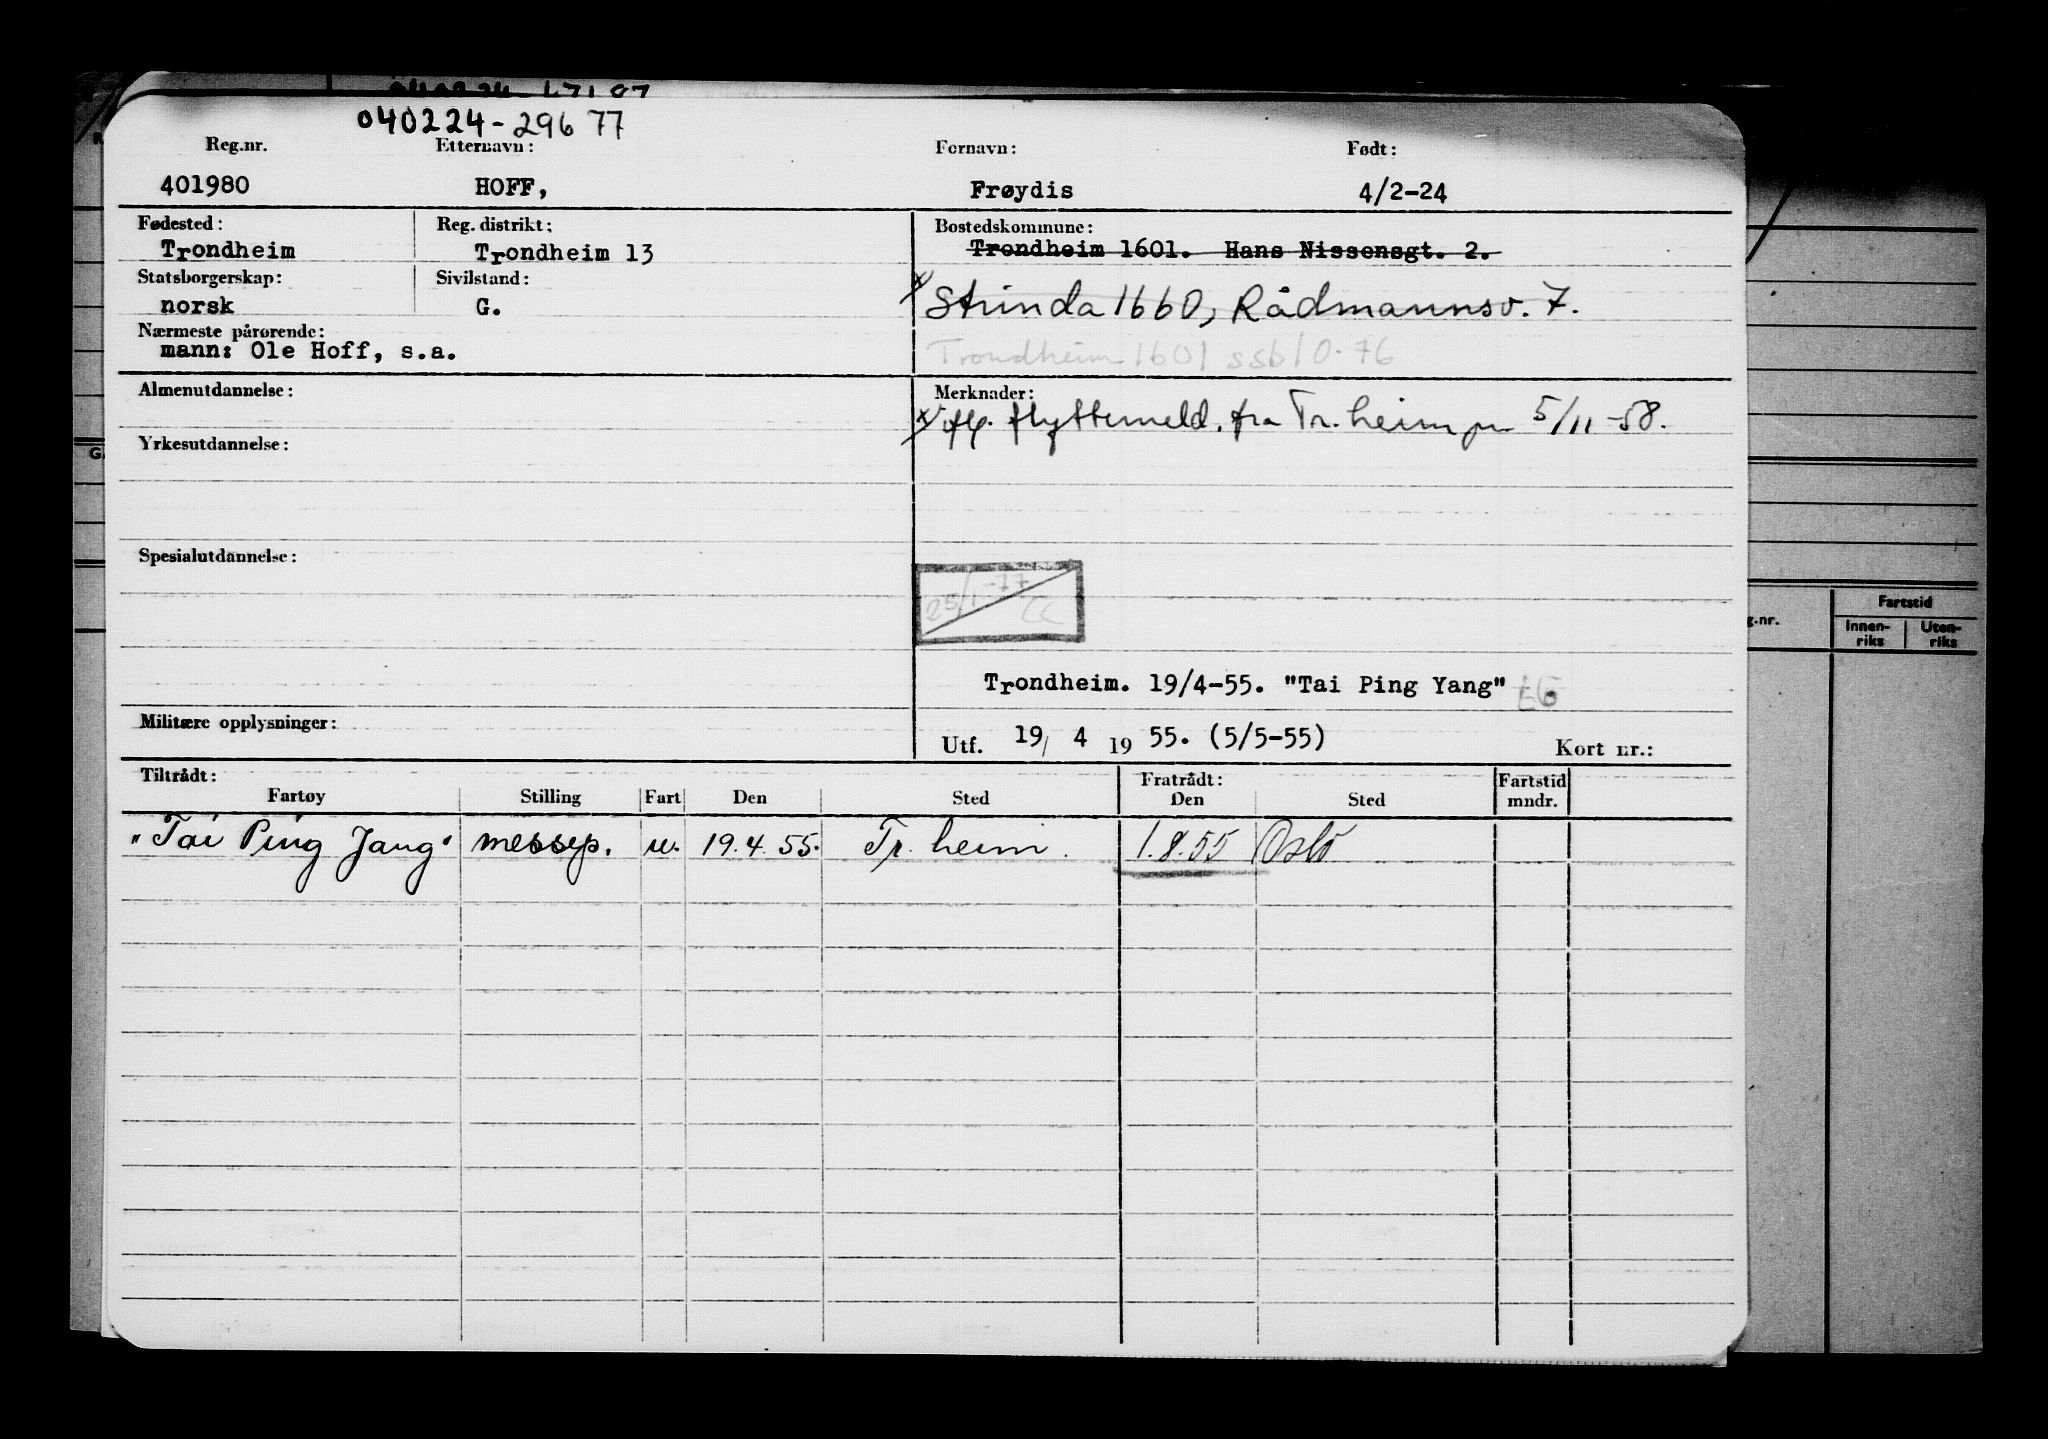 040224-29677
Reg.nr. Etternavn: Fornavn: Født:
401980 HOFF, Frøydis 4/2-24
Fødested: Reg. distrikt: Bostedskommune:
Trondheim Trondheim 13 Trondheim 1601. Hans Nissensgt. 2.
Statsborgerskap: Sivilstand:
norsk G. x Strinda 1660, Rådmannsv. 7.
Nærmeste pårørende:
mann: Ole Hoff, s.a. Trondheim 1601 ssb 10.76
Almenutdannelse: Merknader:
x iflg. flyttemeld. fra Tr.heim pr 5/11-58.
Yrkesutdannelse:
Spesialutdannelse:
25/1-77
Trondheim. 19/4-55. "Tai Ping Yang"
Militære opplysninger:
Utf. 19/ 4 19 55. (5/5-55) Kort nr.:
Tiltrådt: Fratrådt: Fartstid
Fartøy Stilling Fart Den Sted Den Sted mndr.
"Tai Ping Jang" messep. u. 19.4.55. Tr.heim. 1.8.55 Oslo
G.
g.nr. Fartstid
Innen- Uten-
riks riks